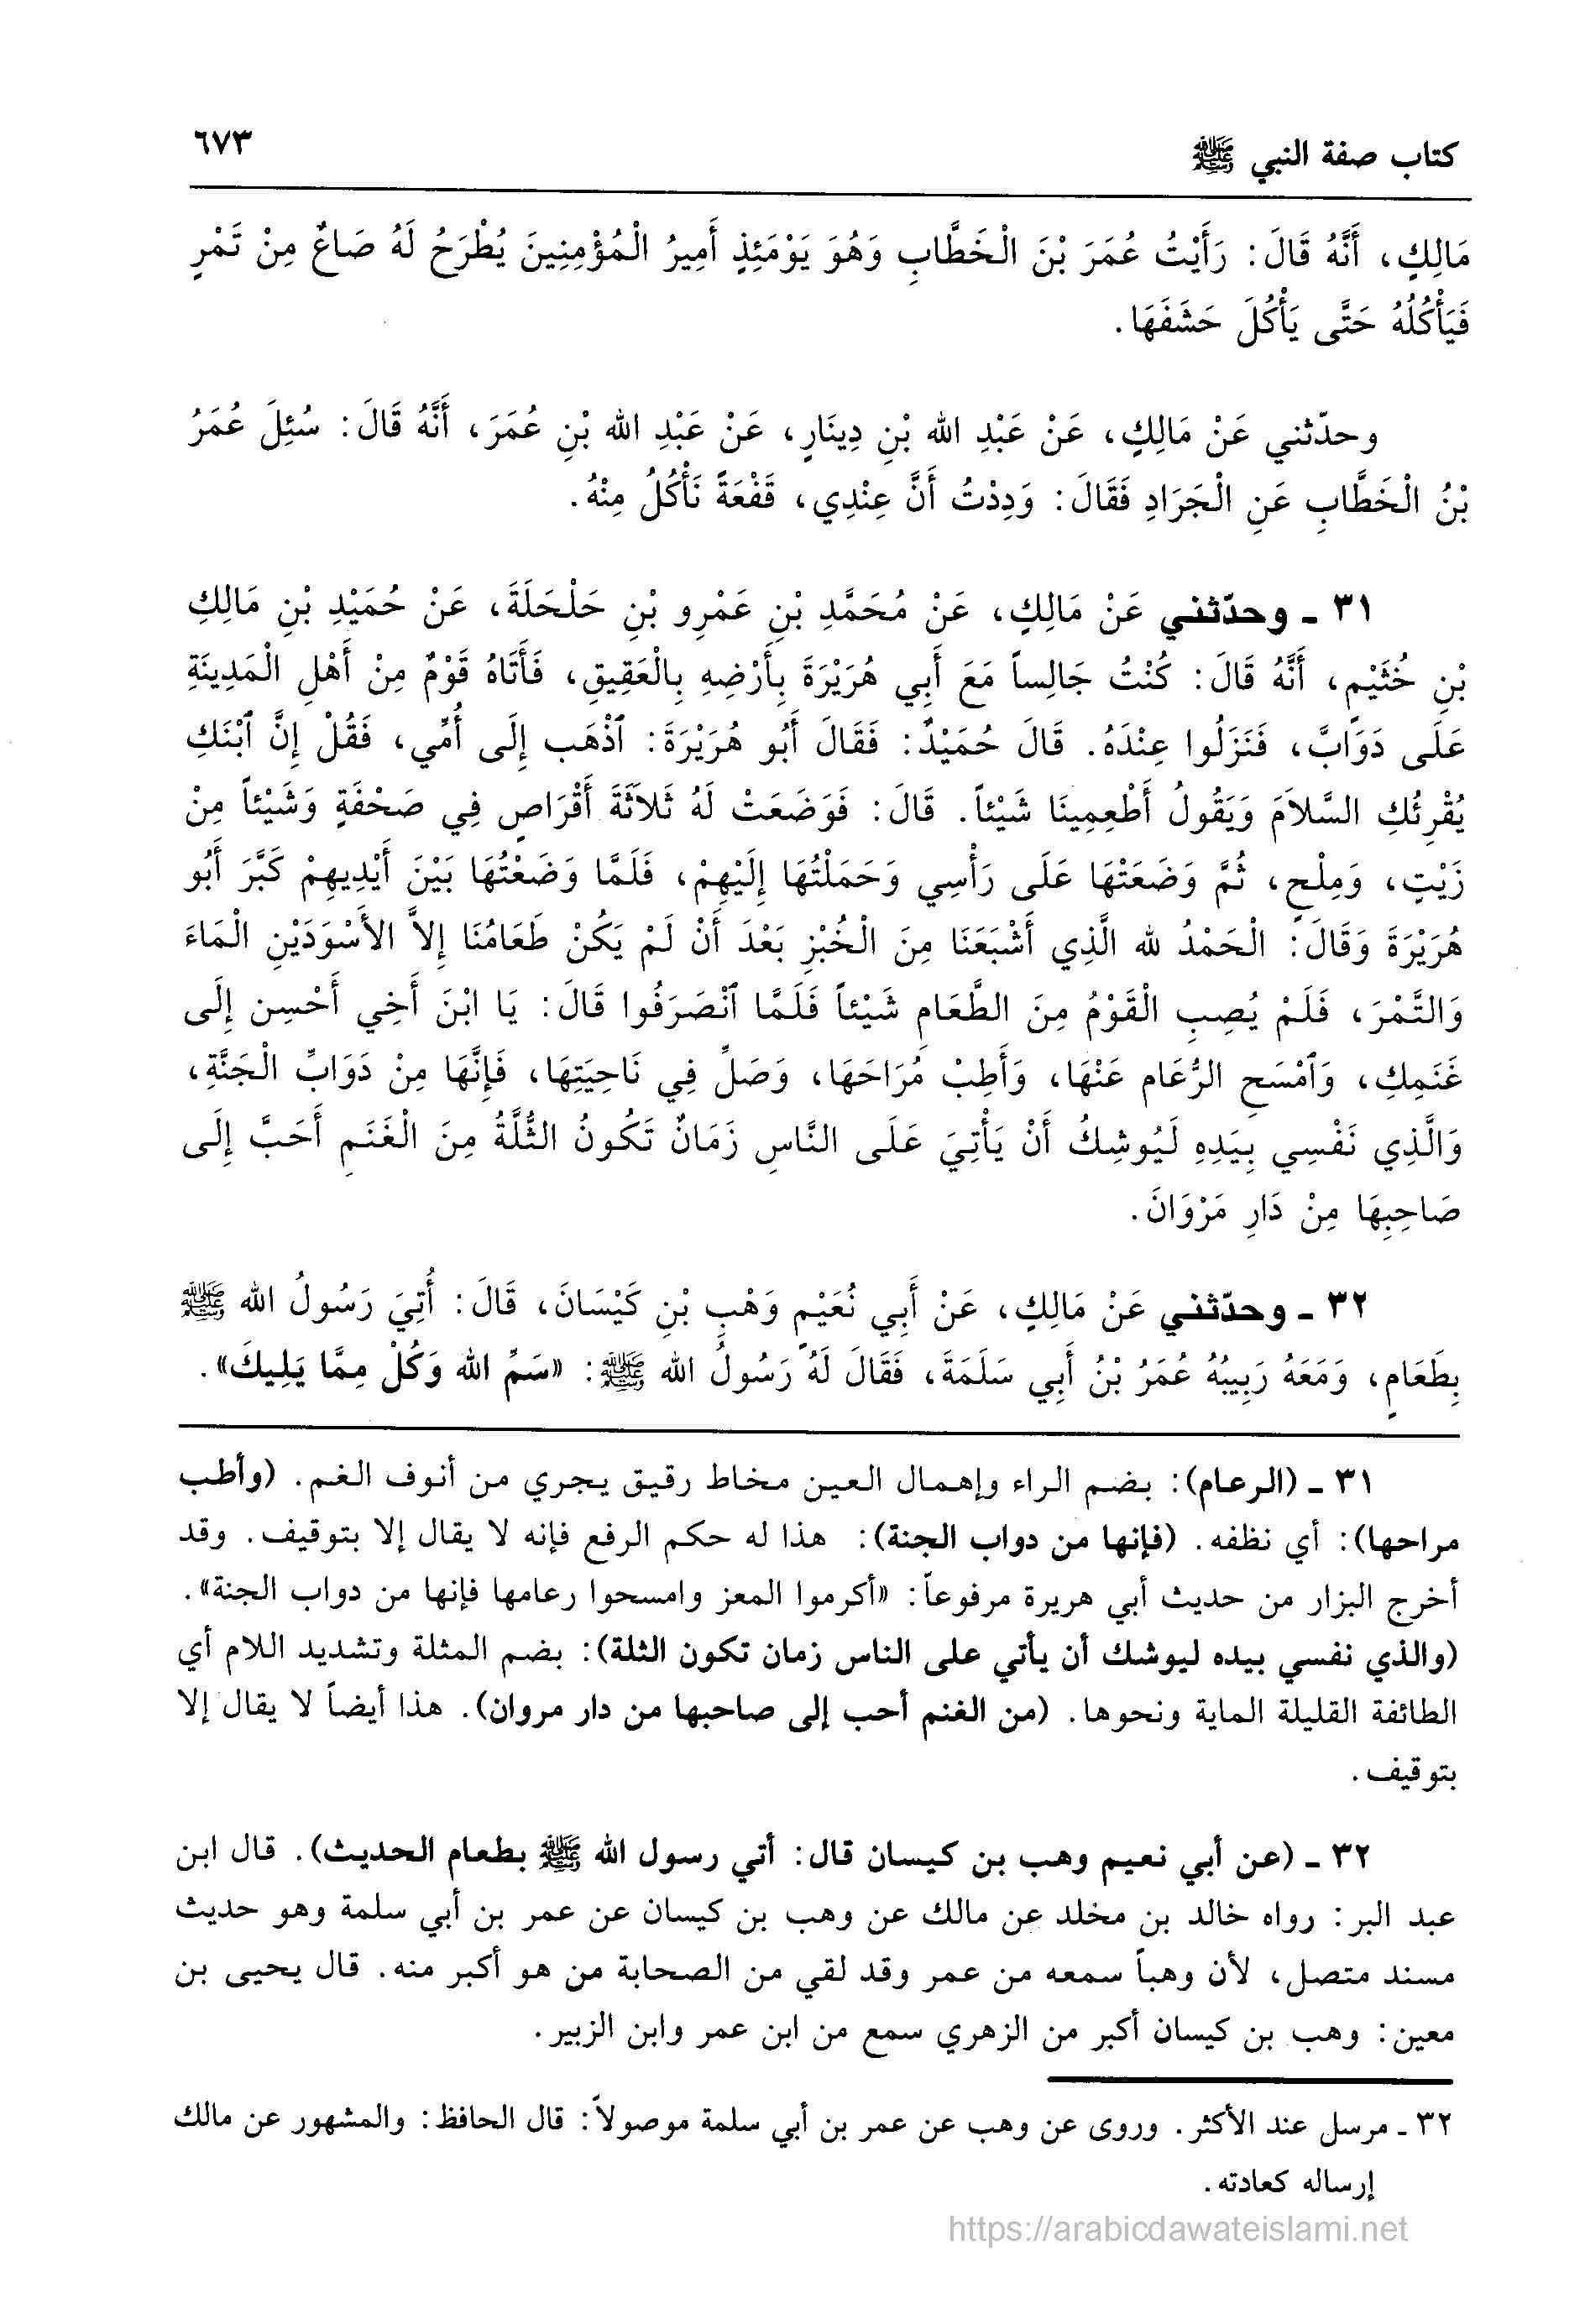 كتاب صفة النبي ﷺ
٦٧٣
مَالِكٍ، أَنَّهُ قَالَ: رَأَيْتُ عُمَرَ بْنَ الْخَطَّابِ وَهُوَ يَوْمَئِذٍ أَمِيرُ الْمُؤْمِنِينَ يُطْرَحُ لَهُ صَاعٌ مِنْ تَمْرٍ
فَيَأْكُلُهُ حَتَّى يَأْكُلَ حَشَفَهَا.
وحدّثني عَنْ مَالِكٍ، عَنْ عَبْدِ الله بْنِ دِينَارٍ، عَنْ عَبْدِ الله بْنِ عُمَرَ، أَنَّهُ قَالَ: سُئِلَ عُمَرُ
بْنُ الْخَطَّابِ عَنِ الْجَرَادِ فَقَالَ: وَدِدْتُ أَنَّ عِنْدِي، قَفْعَةً نَأْكُلُ مِنْهُ.
٣١ ـ وحدّثني عَنْ مَالِكٍ، عَنْ مُحَمَّدِ بْنِ عَمْرِو بْنِ حَلْحَلَةَ، عَنْ حُمَيْدِ بْنِ مَالِكِ
بْنِ خُثَيْمٍ، أَنَّهُ قَالَ: كُنْتُ جَالِساً مَعَ أَبِي هُرَيْرَةَ بِأَرْضِهِ بِالْعَقِيقِ، فَأَتَاهُ قَوْمٌ مِنْ أَهْلِ الْمَدِينَةِ
عَلَى دَوَابَّ، فَنَزَلُوا عِنْدَهُ. قَالَ حُمَيْدٌ: فَقَالَ أَبُو هُرَيْرَةَ: ٱذْهَب إِلَى أُمِّي، فَقُلْ إِنَّ ٱبْنَكِ
يُقْرِئُكِ السَّلاَمَ وَيَقُولُ أَطْعِمِينَا شَيْئاً. قَالَ: فَوَضَعَتْ لَهُ ثَلاَثَةَ أَقْرَاصٍ فِي صَحْفَةٍ وَشَيْئاً مِنْ
زَيْتٍ، وَمِلْحٍ، ثُمَّ وَضَعَتْهَا عَلَى رَأْسِي وَحَمَلْتُهَا إِلَيْهِمْ، فَلَمَّا وَضَعْتُهَا بَيْنَ أَيْدِيهِمْ كَبَّرَ أَبُو
هُرَيْرَةَ وَقَالَ: الْحَمْدُ لله الَّذِي أَشْبَعَنَا مِنَ الْخُبْزِ بَعْدَ أَنْ لَمْ يَكُنْ طَعَامُنَا إِلاَّ الأَسْوَدَيْنِ الْمَاءَ
وَالتَّمْرَ، فَلَمْ يُصِبِ الْقَوْمُ مِنَ الطَّعَامِ شَيْئاً فَلَمَّا ٱنْصَرَفُوا قَالَ: يَا ابْنَ أَخِي أَحْسِن إِلَى
غَنَمِكِ، وَٱمْسَحِ الرُّعَام عَنْهَا، وَأَطِبْ مُرَاحَهَا، وَصَلِّ فِي نَاحِيَتِهَا، فَإِنَّهَا مِنْ دَوَابِّ الْجَنَّةِ،
وَالَّذِي نَفْسِي بِيَدِهِ لَيُوشِكُ أَنْ يَأْتِيَ عَلَى النَّاسِ زَمَانٌ تَكُونُ الثُّلَّةُ مِنَ الْغَنَمِ أَحَبَّ إِلَى
صَاحِبِهَا مِنْ دَارِ مَرْوَانَ.
٣٢ ـ وحدّثني عَنْ مَالِكٍ، عَنْ أَبِي نُعَيْمٍ وَهْبِ بْنِ كَيْسَانَ، قَالَ: أُتِيَ رَسُولُ الله ﷺ
بِطَعَامٍ، وَمَعَهُ رَبِيبُهُ عُمَرُ بْنُ أَبِي سَلَمَةَ، فَقَالَ لَهُ رَسُولُ الله ﷺ: «سَمِّ الله وَكُلْ مِمَّا يَلِيكَ».
٣١ ـ (الرعام): بضم الراء وإهمال العين مخاط رقيق يجري من أنوف الغم. (وأطب
مراحها): أي نظفه. (فإنها من دواب الجنة): هذا له حكم الرفع فإنه لا يقال إلا بتوقيف. وقد
أخرج البزار من حديث أبي هريرة مرفوعاً: «أكرموا المعز وامسحوا رعامها فإنها من دواب الجنة».
(والذي نفسي بيده ليوشك أن يأتي على الناس زمان تكون الثلة): بضم المثلة وتشديد اللام أي
الطائفة القليلة الماية ونحوها. (من الغنم أحب إلى صاحبها من دار مروان). هذا أيضاً لا يقال إلا
بتوقيف.
٣٢ ـ (عن أبي نعيم وهب بن كيسان قال: أتي رسول الله ﷺ بطعام الحديث). قال ابن
عبد البر: رواه خالد بن مخلد عن مالك عن وهب بن كيسان عن عمر بن أبي سلمة وهو حديث
مسند متصل، لأن وهباً سمعه من عمر وقد لقي من الصحابة من هو أكبر منه. قال يحيى بن
معين: وهب بن كيسان أكبر من الزهري سمع من ابن عمر وابن الزبير.
٣٢ ـ مرسل عند الأكثر. وروى عن وهب عن عمر بن أبي سلمة موصولاً: قال الحافظ: والمشهور عن مالك
إرساله كعادته.
https://arabicdawateislami.net